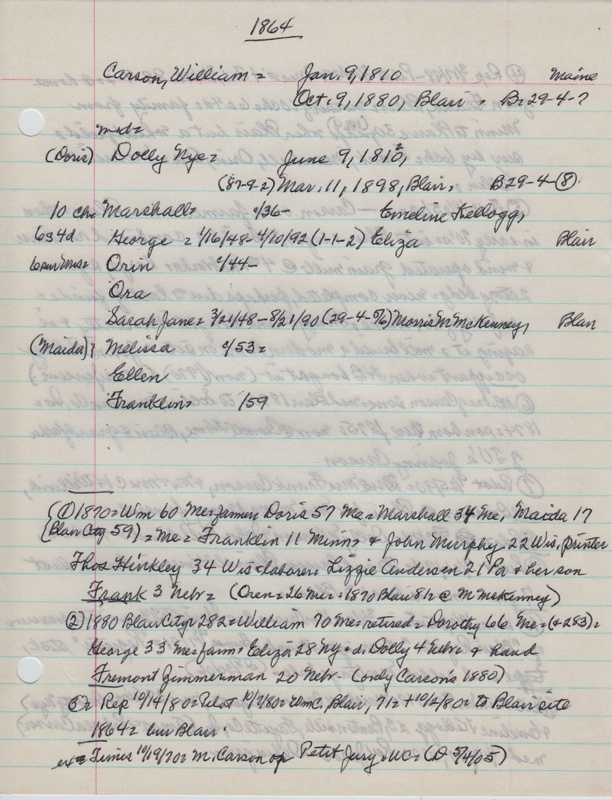 1864
Carson, William = Jan. 9, 1810 Maine
Oct. 9, 1880, Blair = B-29-4-7
mxd=
(Doris) Dolly Nye = June 9, 1810,
(87-9-2) Mar. 11, 1898, Blair, B29-4-(8)
10 chn Marshall= c/36- Emeline Kellogg,
6s4d George = 1/16/48-4/10/92 (1-1-2) Eliza Blair
Orin c/44-
Ora
Sarah Jane = 3/21/48-8/21/90 (29-4-5/6) Morris M. McKenney, Blair
(Maida)? Melissa c/53=
Ellen
Franklin= /59
(1) 1870= Wm 60 Me= farmer Doris 57 Me= Marshall 34 Me, Maida 17
(Blair City 59) = Me= Franklin 11 Minn & John Murphy 22 Wis, printer
Thos Hinkley 34 Wis= laborer= Lizzie Andersen 21 Pa & her son
Frank 3 Nebr= (Oren= 26 Me= 1870 Blair 81= @ M McKenney)
(2) 1880 Blair City= 282= William 70 Me= retired= Dorothy 66 Me= (+283)=
George 33 Me= farm= Eliza 28 NY= di Dolly 4 Nebr & hand
Fremont Zimmerman 20 Nebr- (only Carsons 1880)
Or Rep 10/14/80= Pilot 10/7/80= Wm C, Blair, 71= + 10/2/80= to Blair site
1864= bur Blair.
ex= Times 10/19/70= M. Carson op Petit Jury= WC= (D 5/4/05)